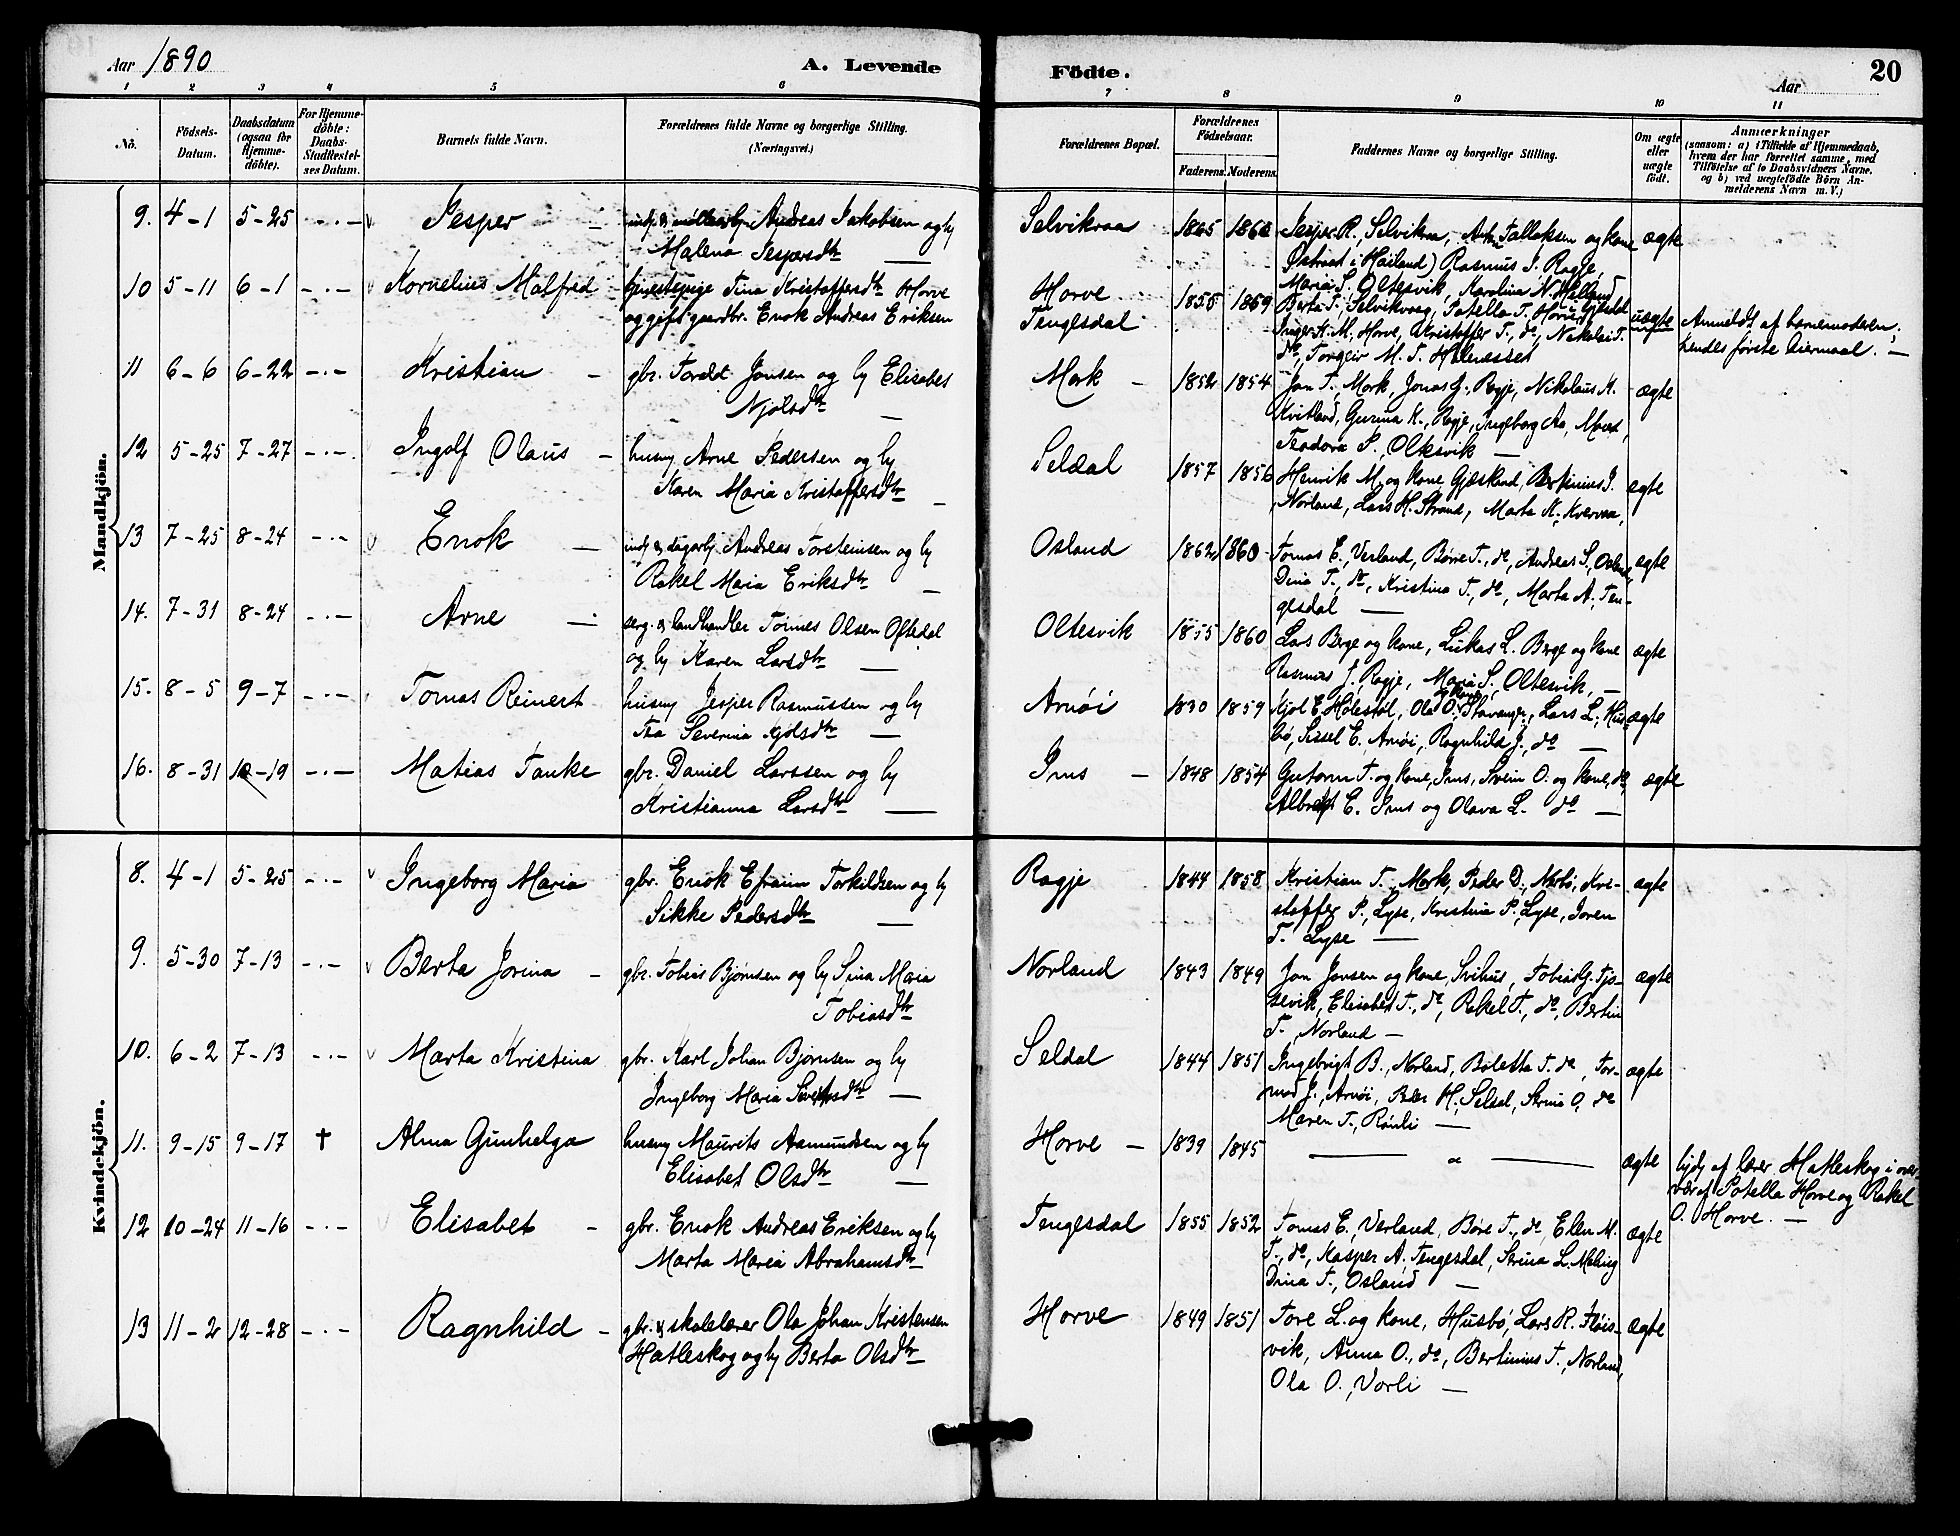 Aar 1890
A. Levende
Födte.
Aar
20
1 2 3 4 5 6 7 8 9 10 11
No.
Födsels-
Datum.
Daabsdatum
(ogsaa for
Hjemme-
döbte).
For Hjemme-
döbte:
Daabs-
Stadfæstel-
ses Datum.
Barnets fulde Navn.
Forældrenes fulde Navne og borgerlige Stilling.
(Næringsvei.)
Forældrenes Bopæl.
Forældrenes
Födselsaar.
Faderens. Moderens.
Faddernes Navne og borgerlige Stilling.
Om ægte
eller
uægte
födt.
Anmærkninger
(saasom: a) i Tilfælde af Hjemmedaab,
hvem der har forrettet samme, med
Tilföielse af to Daabsvidners Navne.
og b) ved uægtefödte Börn An-
melderens Navn m. V.)
Mandkjön.
9. 4-1 5-25 -.- Jesper - Andreas Jakobsen og hy
Malena Jespersdtr
Selvikvaa 1865 Jesper R., Selvikvaa, Tallaksen og kone
Østraat i Høiland) Rasmus J. Ragje, ægte
Maria S. Oltesvik, Karolina N. Helland
10 5-11 6-1 -.- Kornelius Malfred tjenestepige Tina Kristoffersdtr Horve
og gift gaardbr. Enok Andreas Eriksen
Horve
Tengesdal
1855 1869 Berta T., Selvikvaag,
Inger K. M., Horve, Kristoffer T., do, Nikolai T.
do, Torgeir M. T.
uægte Anmeldt af barnemoderen;
hendes første leiermaal. -
11 6-6 6-22 -.- Kristian - gbr. Jonsen og hy Elisabet
Njølsdtr
Mork - 1852 1854 Jon T., Mork, Jonas J., Ragje, Nikolaus K.
Kvitland, Gurina K., Ragje, Ingeborg Aa,
Teodora S., Oltesvik -
ægte
12 5-25 7-27 -.- Ingolf Olaus - husm Arne Pedersen og hy
Karen Maria Kristoffersdtr -
Seldal 1857 1856 Henrik M. og kone Gjesland, Bertinius J.
Norland, Lars H. Strand, Marta K., Kvervaa,
ægte
13 7-25 8-24 -.- Enok - Andreas Torsteinsen og hy
Rakel Maria Eriksdtr -
Osland 1862 1860 Tomas E., Verland, Børe T., do, Andreas S., Osland,
Dina T., do, Kristina T., do, Marta A., Ten-
gesdal -
ægte
14. 7-31 8-24 -.- Arne - landhandler Tørnes Olsen Oftedal
og hy Karen Larsdtr -
Oltesvik 1855 1860 Lars Berge og kone, Lukas L. Berge og kone
Rasmus J., Ragje, Maria S., Oltesvik, -
ægte
15. 8-5 9-7 -.- Tomas Reinert husm Jesper Rasmussen og hy
Tea Severina Kjølsdtr -
Arnøi 1830 1859 Kjøl E. Holestøl, Ola O. og kone Stavanger, Lars L., Hus-
bø, Sissel E. Arnøi, Ragnhild J., do -
ægte
16. 8-31 10-19 -.- Matias Tanke gbr. Daniel Larssen og hy
Kristianna Larsdtr -
Ims - 1848 1854 Gutorm T. og kone, Ims, Svein O. og kone, do,
Albregt E. Ims og Olava L. do -
ægte
Kvindekjön.
8. 4-1 5-25 -.- Ingeborg Maria gbr. Enok Efraim Torkildsen og hy
Sikke Pedersdtr -
Ragje 1844 1858 Kristian T., Mork, Peder D., Nærbø, Kri-
stoffer P., Lyse, Kristina P., Lyse, Joren
T. Lyse -
ægte
9. 5-30 7-13 -.- Berta Jorina - gbr. Tobias Bjørnsen og hy Sina Maria
Tobiasdtr
Norland 1843 1849 Jon Jonsen og kone, Svihus, Tobias G. Tjø-
sevik, Elisabet T., do, Rakel T., do, Bertin
T., Norland -
ægte
10. 6-2 7-13 -.- Marta Kristina gbr. Karl Johan Bjørnsen og hy
Ingeborg Maria Sivertsdtr -
Seldal 1844 1851 Ingebrigt B., Norland, Boletta T. do, Tor-
mod J., Arnøi, Peder H., Seldal, Serina O. do
Maren T., Rønli -
ægte
11. 9-15 9-17 † Alma Gunhelga husm Maurits Asmundsen og hy
Elisabet Olsdtr -
Horve - 1839 1845 - " - ægte hjdp af lærer Hatleskog i over-
vær af Potella Horve og Rakel
O. Horve. -
12 10-24 11-16 -.- Elisabet - gbr. Enok Andreas Eriksen og hy
Marta Maria Abrahamsdtr
Tengesdal 1855 1852 Tomas E., Verland, Børe T., do, Elen M.
T., do, Kasper A. Tengesdal, Serina L. Maling
Dina T., Osland -
ægte
13 11-2 12-28 -.- Ragnhild - gbr. & skolelærer Ola Johan Kristensen
Hatleskog og hy Berta Olsdtr
Horve 1849 1851 Tore L. og kone, Husbø, Lars R. Fløis-
vik, Anna O., do, Bertinius T., Norland,
Ola O., Vorli -
ægte